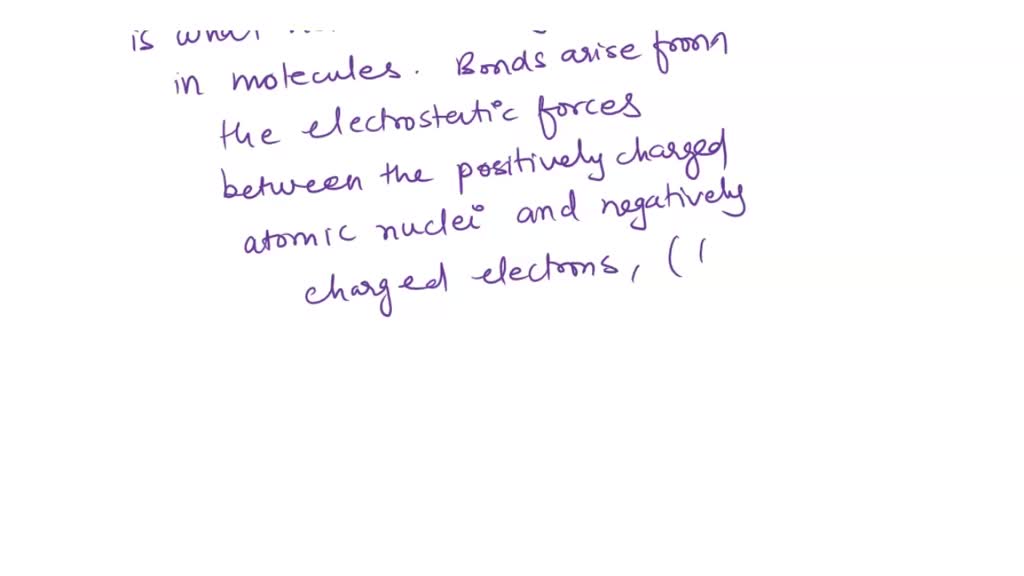 is what
in molecules. Bonds arise from
the electrostatic forces
between the positively charged
atomic nuclei and negatively
charged electrons, (